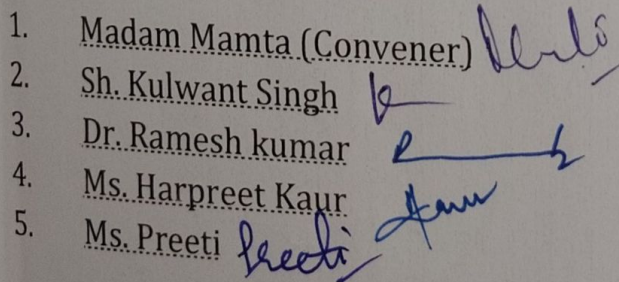 1. Madam Mamta (Convener)
2. Sh. Kulwant Singh
3. Dr. Ramesh kumar
4. Ms. Harpreet Kaur
5. Ms. Preeti Preeti